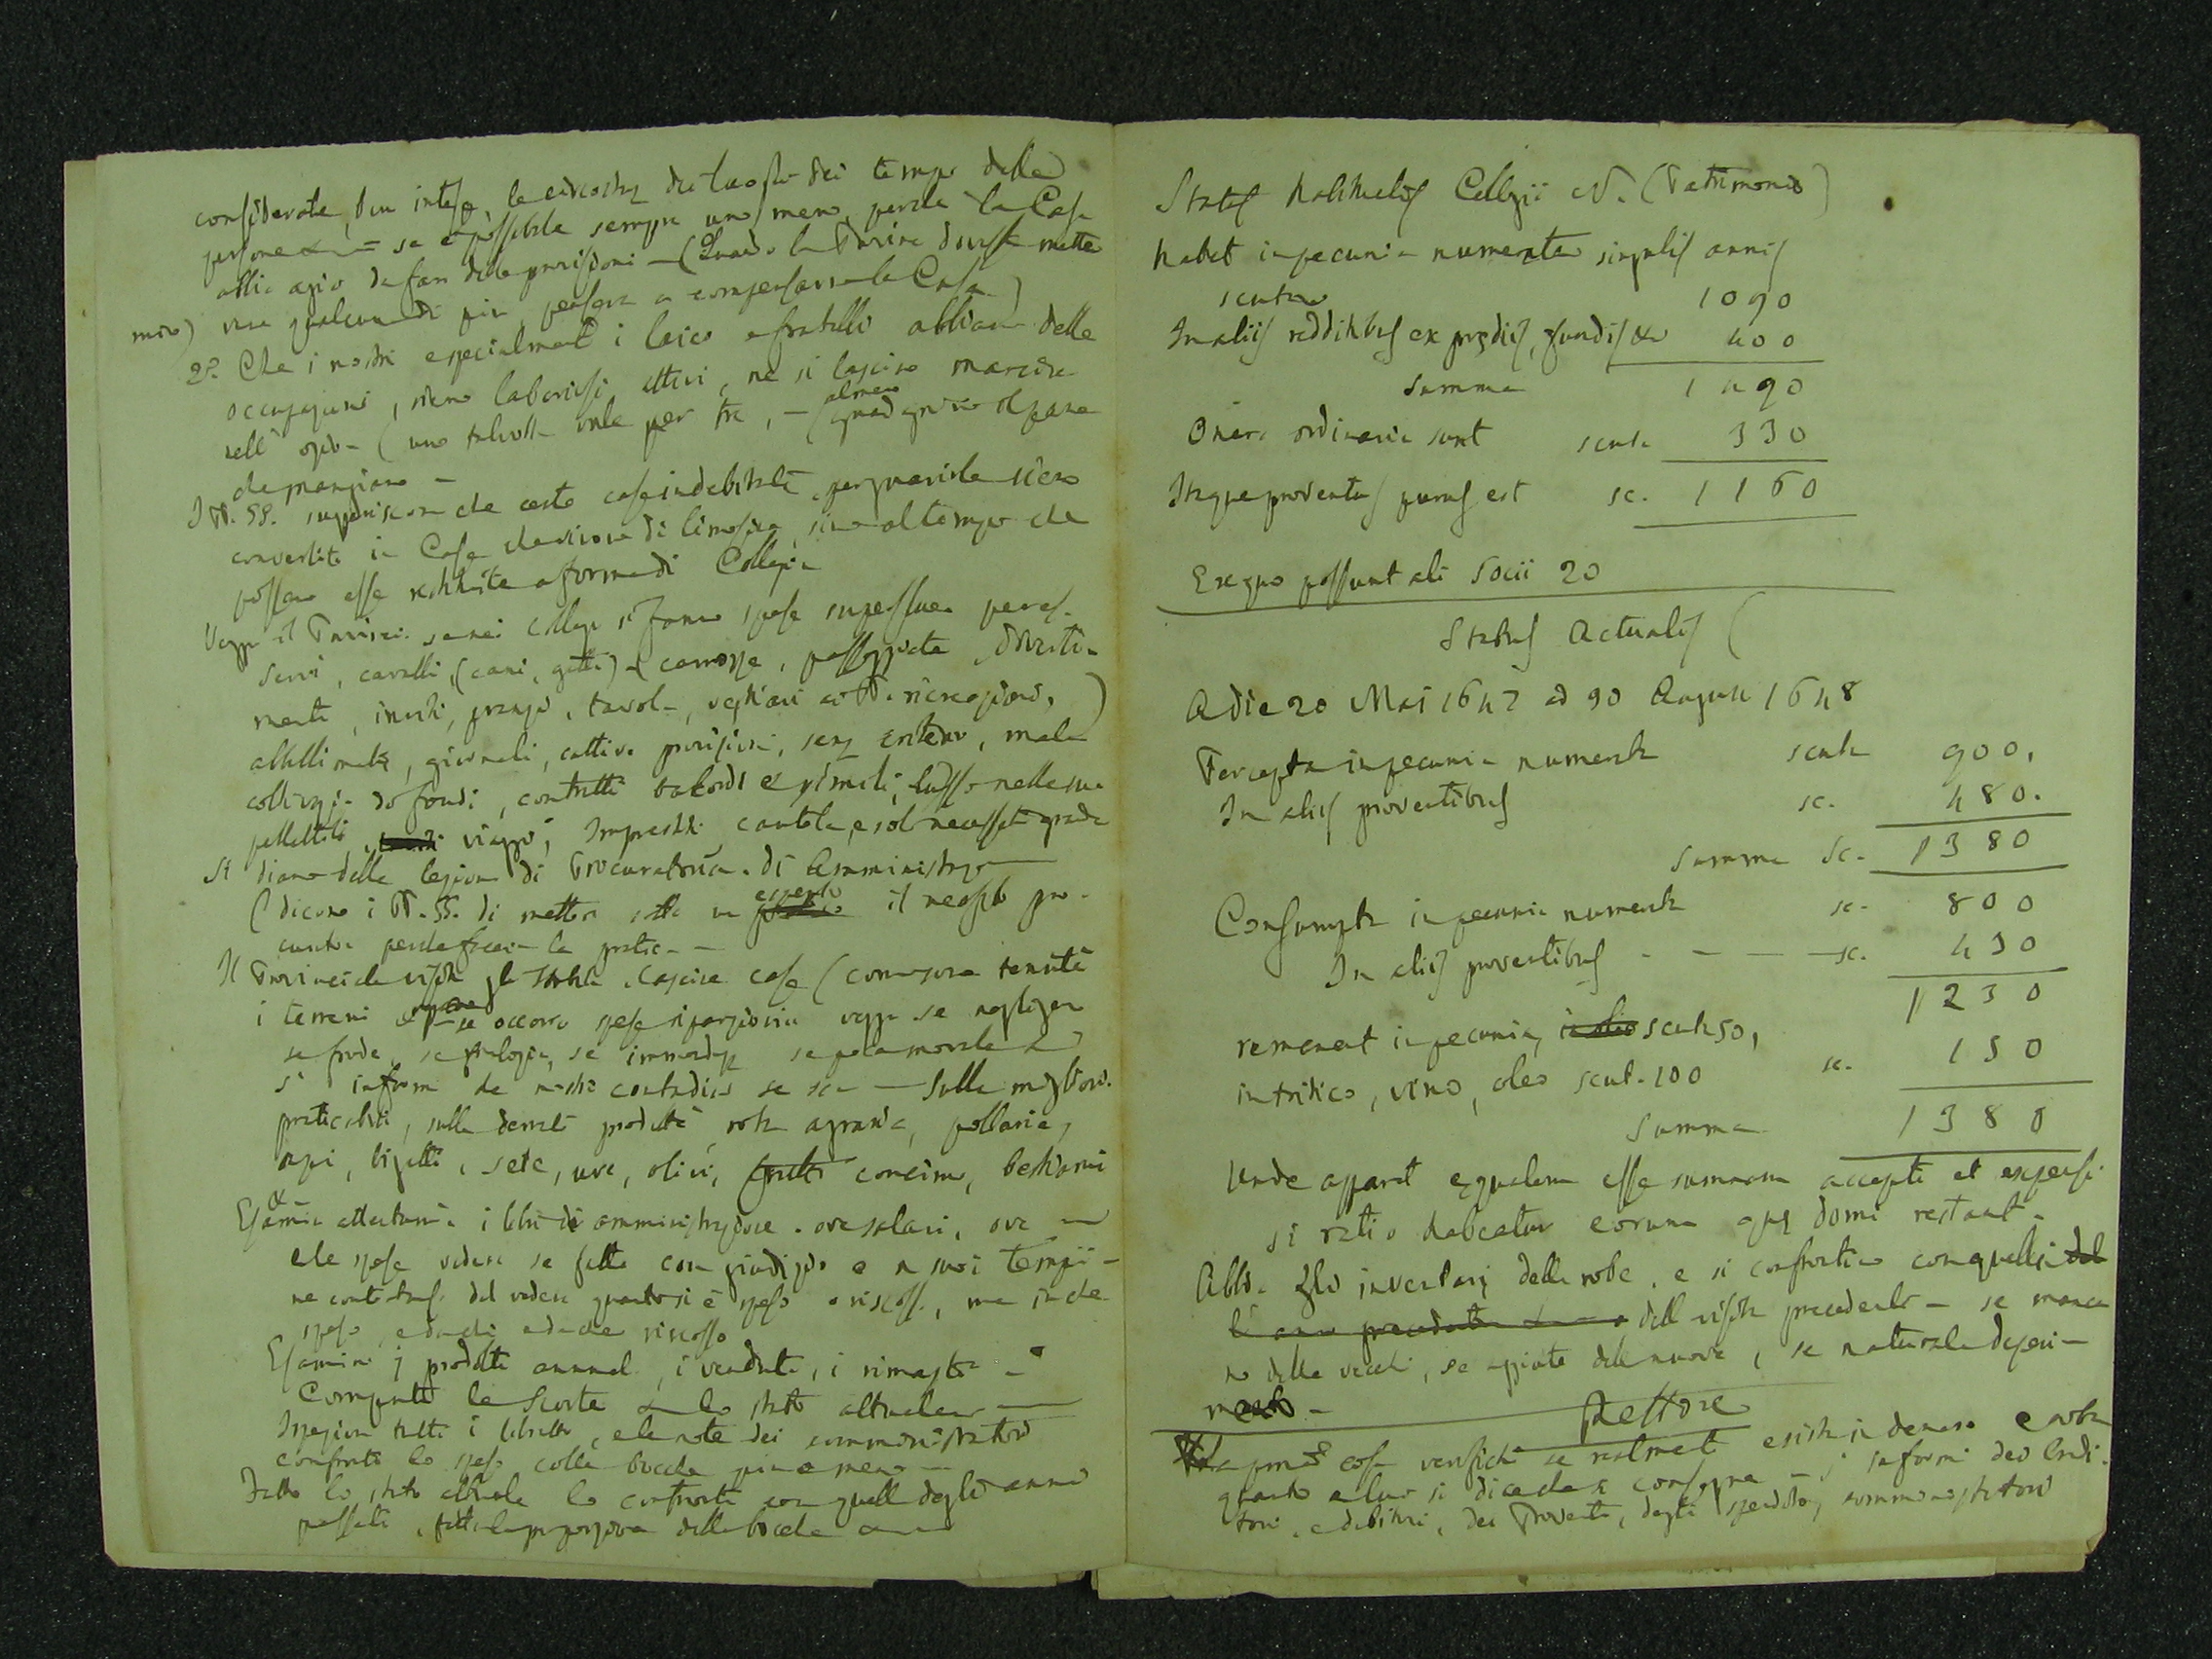 considerate, ben intese le circostze del luogo dei tempo delle
persone &c — = se è possibile sempre uno meno, perche la Casa
abbia agio da fare delle provisioni — (Quando la Provina dovesse mette
mro) vene qualcuno di più, pensera a compensarne la Casa.)
2º Che i nostri especialmente i laici o fratelli abbiano delle
occupazioni, sieno laboriosi, attivi, ne si lascino marcire
nell' ozio — (uno talvolta vale per tre, — almeno guadagnino il pane
che mangiano —
I PP. SS. suggeriscono che certe case indebitate, per guarirle sieno
convertite in Case che vivono di limosina, sino al tempo che
possano esse restituite a forma di Collegio
Vegga il Provinci. se nei collegi si fanno spese superflue per es.
servi, cavalli, (cani, gatti) — carrozze, passeggiate, diverti-
menti, inviti, pranzi, tavola, vestiari ai PP. ricreazioni,)
abbellimenti, giornali, cattive provisioni, senz criterio, mala
coltivazi. dei fondi, contratti balordi e simili, lusso nelle su
pellettili, viaggi, Imprestiti cautela, e sol necessità grande
Si diano delle lezioni di Procuratoria. di Amministraz —
(dicono i PP. SS. di mettere sotto un esperto il neofito pro-
curatore perche faccia la pratica —
Il Provinciale visiti gli stabili, cascine case (come sono tenute
i terreni se occorre spese riparazioni vegga se negligen
se frode, se
s' informi da nostri contadini se — Sulle migliori.
praticabili, sulle derrate prodotti, roba agraria, pollaria,
api, bigatti, sete, uve, olivi, frutti concime, bestiami
&c
Esamini attentam. i libri di amministrazione. ove salari, ove —
e le spese vedere se fatte con giudizio e a suoi tempi —
ne contentarsi del vedere quanto si è speso o riscosso, ma in che
speso, e da chi e da che riscosso
Esamini i prodotti annuali, i venduti, i rimasti —
Computi le Scorte — lo stato attuale —
Ispezioni tutti i libretti, e le note dei somministratori
confronti le spese colle bocche più o meno —
Fatto lo stato attuale lo confronti con quelli degli anni
passati, fatta la proporzione delle bocche —
Status habitualis Collegii N. (Patrimonio)
habet in pecunia numerata singulis annis
scuta 1090
In aliis redditibus ex prædiis, fundis &c 400
summa 1490
Onera ordinaria sunt scuta 330
Itaque proventus purus est sc. 1160
Ex quo possunt ali Socii 20
Status Actualis (
A die 20 Mai 1647 ad 30 Augusti 1648
Percepta in pecunia numerata scuta 900.
In aliis proventibus sc. 480.
Summa Sc. 1380
Consumpta in pecunia numerata sc. 800
In aliis proventibus - — — — sc. 430
1230
remanent in pecunia, in olio scuta 50,
in tritico, vino, oleo scut. 100 sc. 150
Summa 1380
Unde apparet equalem esse summam accepti et expensi
si ratio habeatur eorum quæ domi restant.
Abbi. Gli inventarj delle robe, e si confrontino con quelli del
l'anno precedente dell visita precedente — se manca
no delle vecchi, se aggiunte delle nuove, se naturale deperi-
mento —
Rettore
prima cosa verifichi se realmente esista in denaro e roba
quanto a lui si dice da consegna — s' informi dei credi.
tori, e debitori, dei Proventi, degli spenditori, somministratori